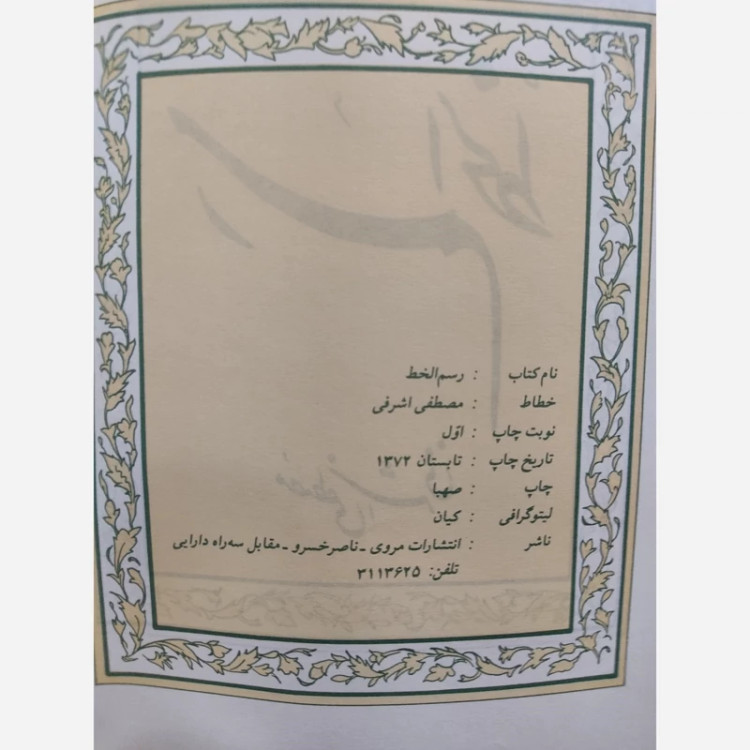 نام کتاب : رسم‌الخط
خطاط : مصطفی اشرفی
نوبت چاپ : اوّل
تاریخ چاپ : تابستان ۱۳۷۲
چاپ : صهبا
لیتوگرافی : کیان
ناشر : انتشارات مروی ـ ناصرخسرو ـ مقابل سه‌راه دارایی
تلفن: ۳۱۱۳۶۲۵